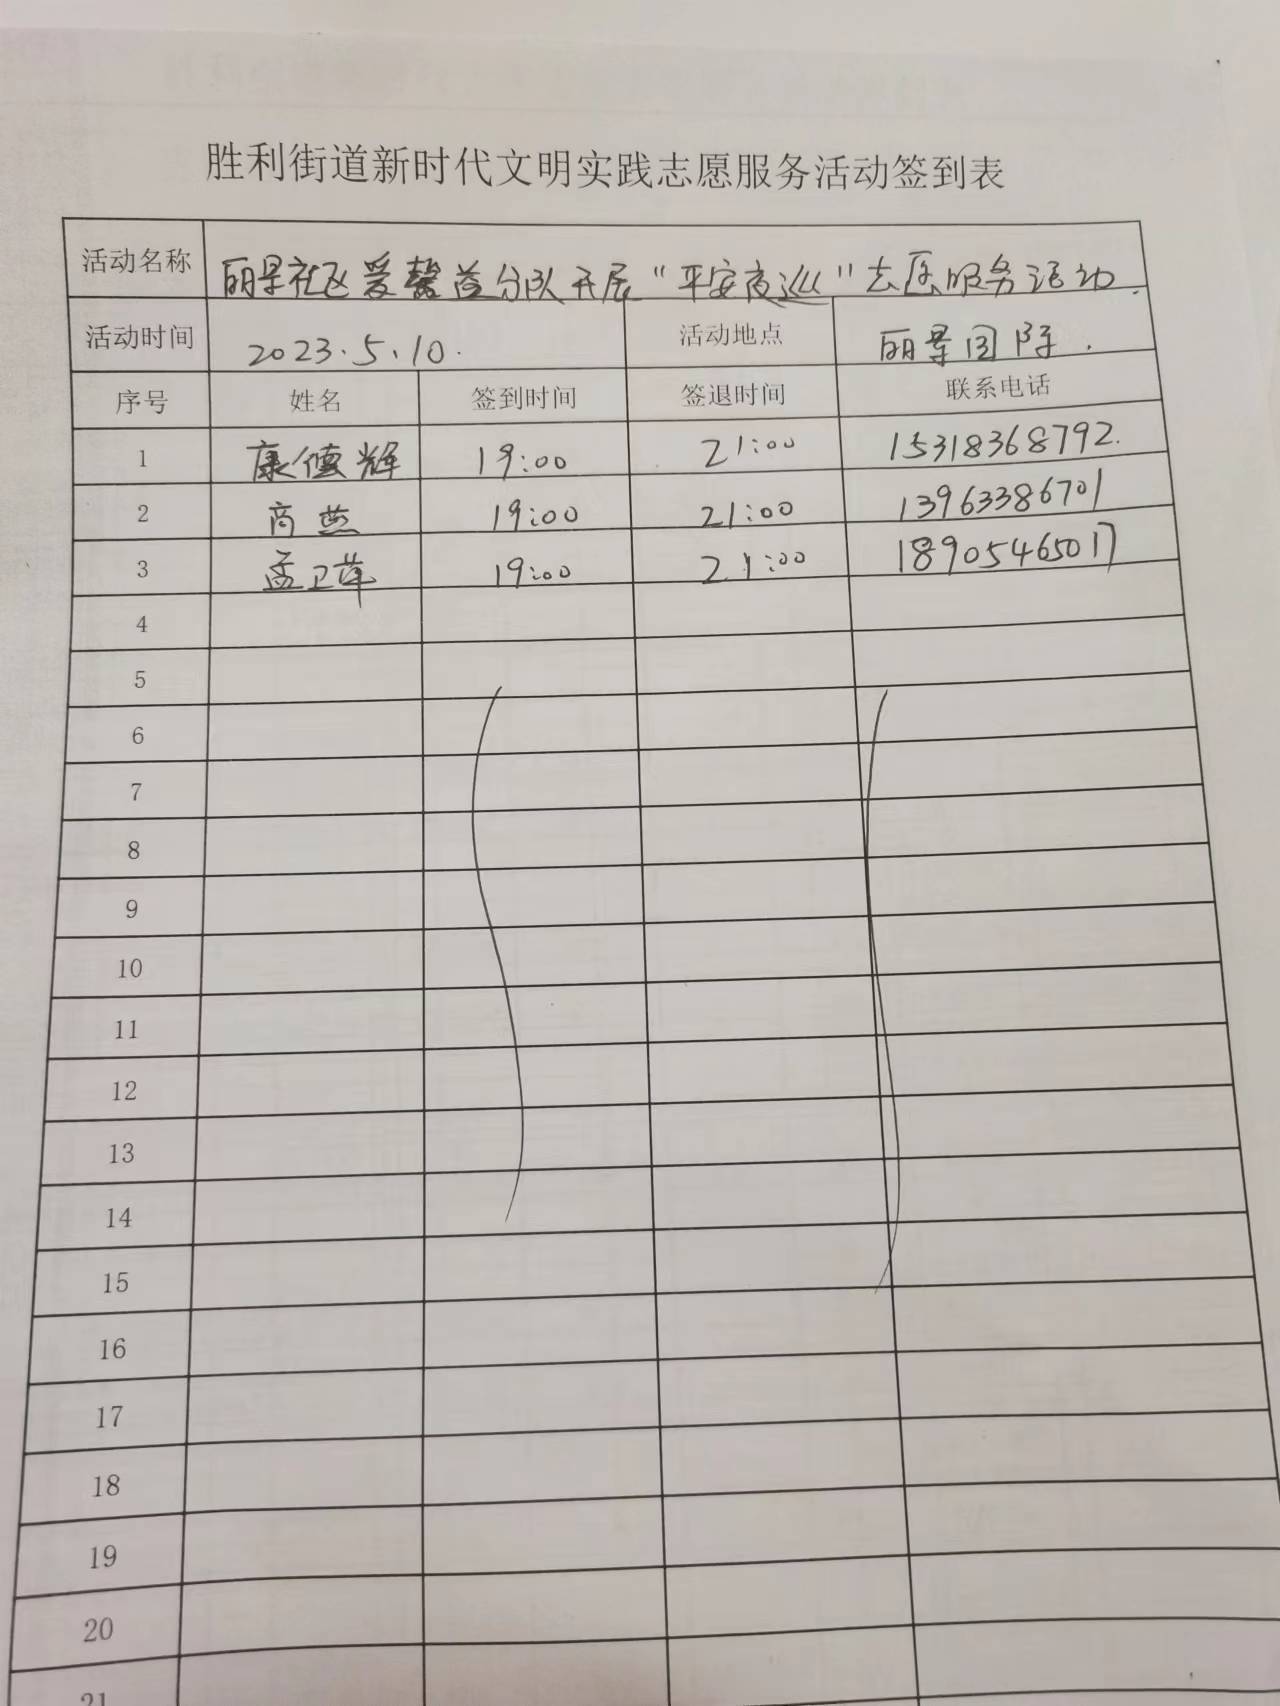 胜利街道新时代文明实践志愿服务活动签到表
活动名称 丽景社区爱馨益分队开展“平安夜巡”志愿服务活动.
活动时间 2023.5.10. 活动地点 丽景园 .
序号 姓名 签到时间 签退时间 联系电话
1 康德辉 19:00 21:00 15318368792.
2 商燕 19:00 21:00 13963386701
3 孟卫萍 19:00 21:00 18905465017
4
5
6
7
8
9
10
11
12
13
14
15
16
17
18
19
20
21